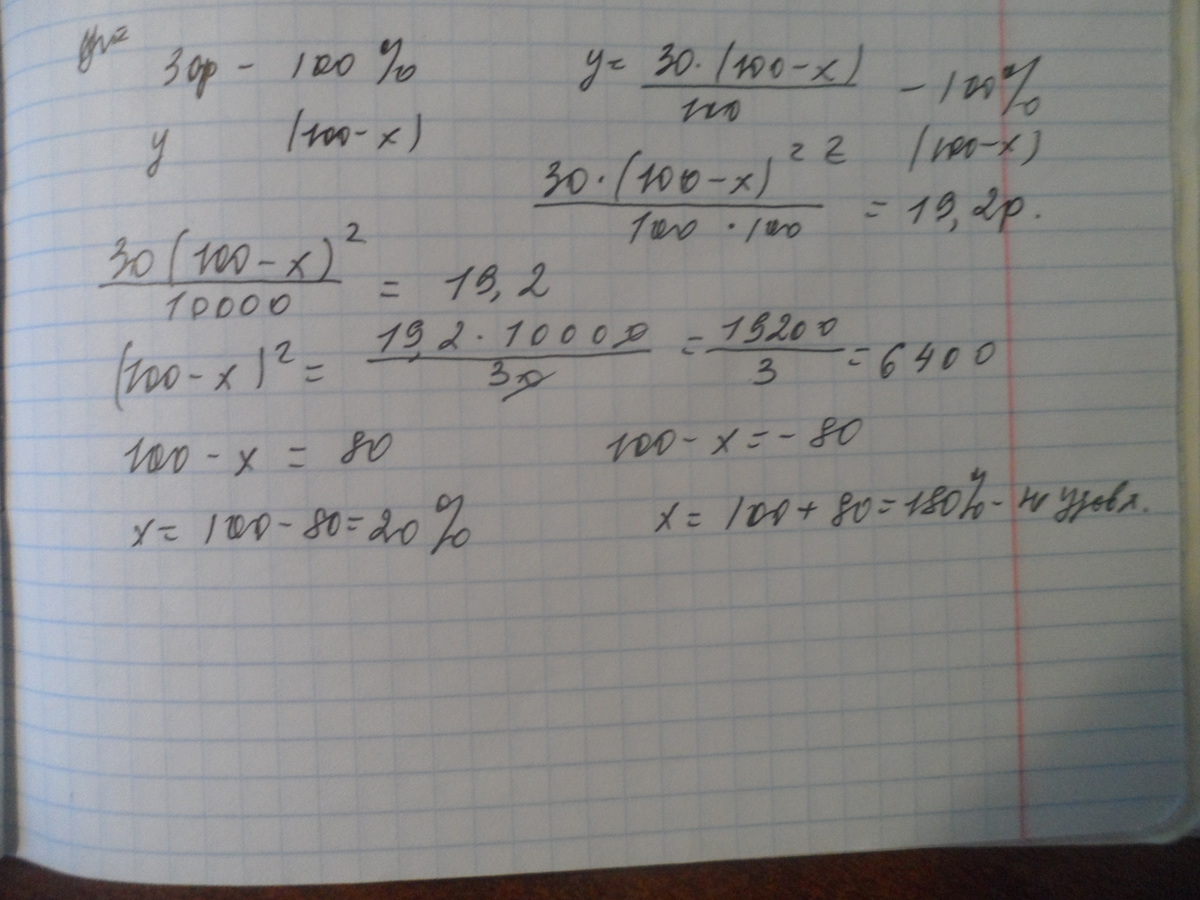 30р - 100%
y (100-x)
y = 30·(100-x)/100 - 100%
z (100-x)
30·(100-x)²/100·100 = 19,2р.
30(100-x)²/10000 = 19,2
(100-x)² = 19,2·10000/30 = 19200/3 = 6400
100-x = 80
100-x = -80
x = 100-80 = 20%
x = 100+80 = 180% - не удовл.